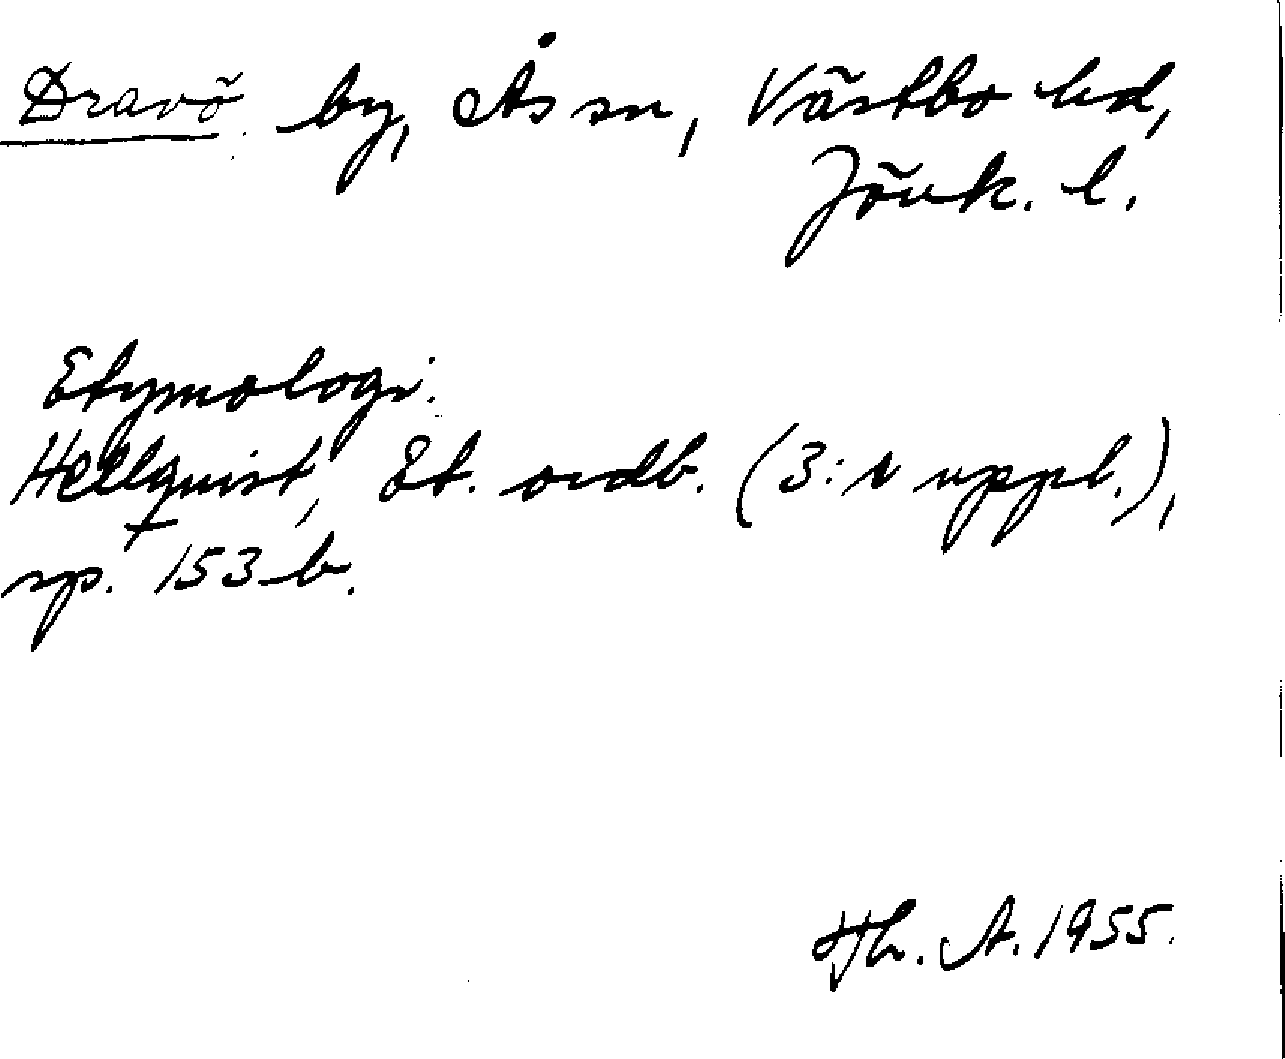 Dravö by, Ås sn, Västbo hd,
Jönk. l.
Etymologi.
Hellquist, Et. ordb. (3:e uppl.),
sp. 153 b.
Hj. A. 1955.